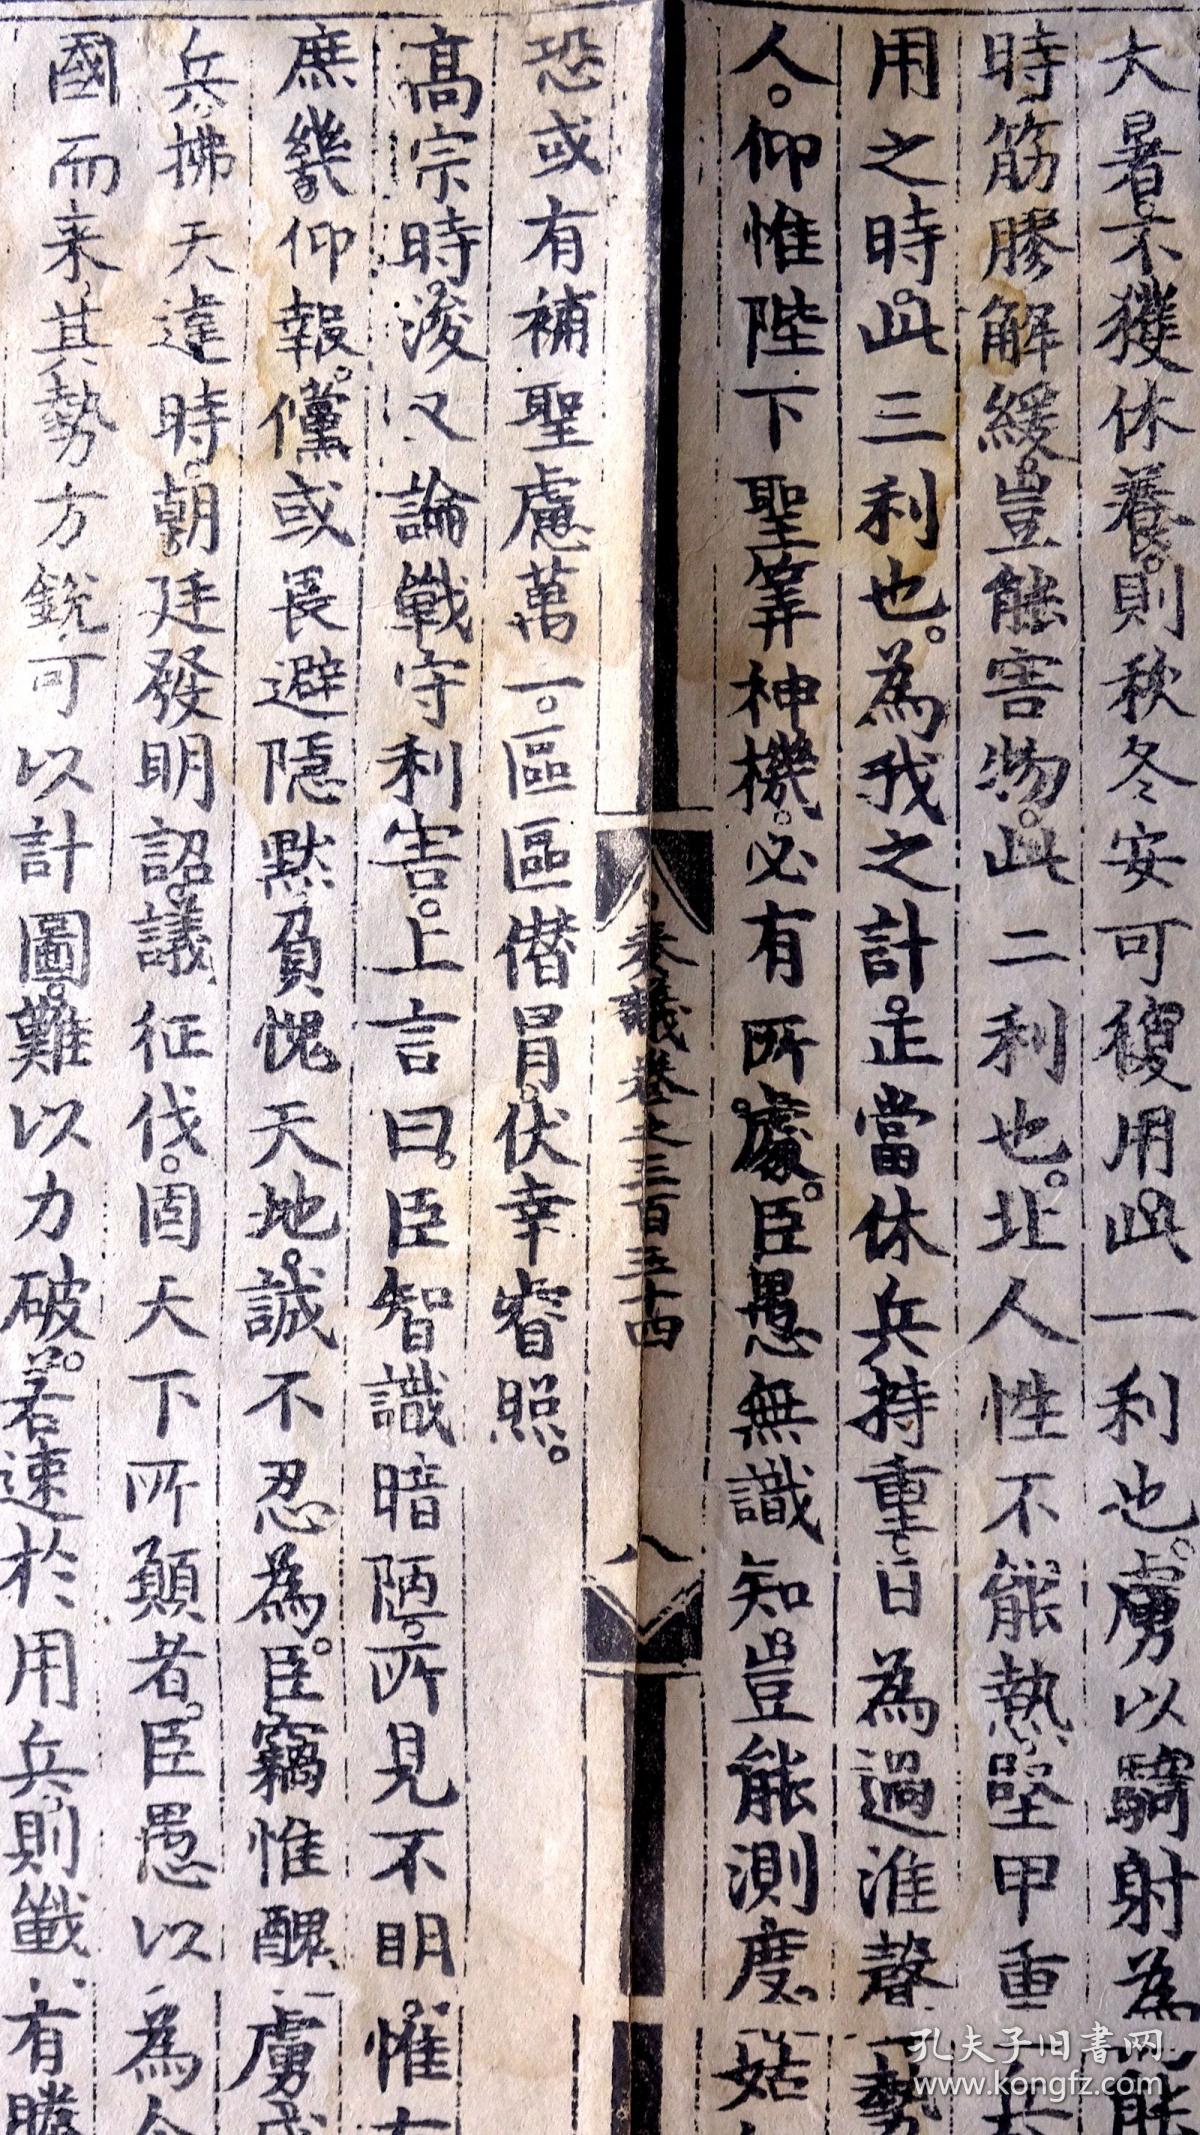 大暑不獲休養則秋冬安可復用此一利也虜以騎射為能
時筋膠解緩豈能害物此二利也北人性不能熱堅甲重兵
用之時此三利也為我之計正當休兵持重日為過淮聲勢
人仰惟陛下聖筭神機必有所處臣愚無識知豈能測度姑
奏議卷之三百三十四
八
恐或有補聖慮萬一區區僣冒伏幸睿照
高宗時浚又論戰守利害上言曰臣智識暗陋所見不明惟
庶幾仰報儻或畏避隱默負愧天地誠不忍為臣竊惟醜虜
兵拂天違時朝廷發明詔議征伐固天下所願者臣愚以為今
國而来其勢方銳可以計圖難以力破若速於用兵則鐵有勝
孔夫子旧書网
www.kongfz.com